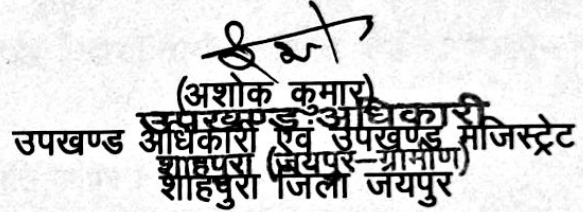 (अशोक कुमार)
उपखण्ड अधिकारी
उपखण्ड अधिकारी एवं उपखण्ड मजिस्ट्रेट
शाहपुरा (जयपुर-ग्रामीण)
शाहपुरा जिला जयपुर